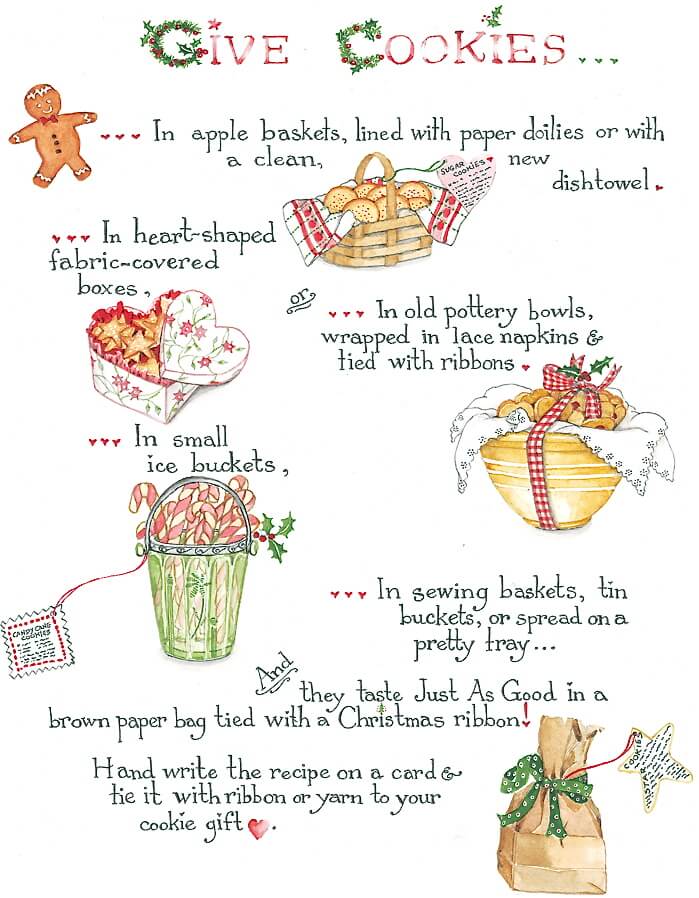 GIVE COOKIES...
In apple baskets, lined with paper doilies or with
a clean, new
dishtowel.
SUGAR
COOKIES
In heart-shaped
fabric-covered
boxes,
or
In old pottery bowls,
wrapped in lace napkins &
tied with ribbons.
In small
ice buckets,
CANDY CANE
COOKIES
In sewing baskets, tin
buckets, or spread on a
pretty tray...
And
they taste Just As Good in a
brown paper bag tied with a Christmas ribbon!
Hand write the recipe on a card &
tie it with ribbon or yarn to your
cookie gift.
COOKIES